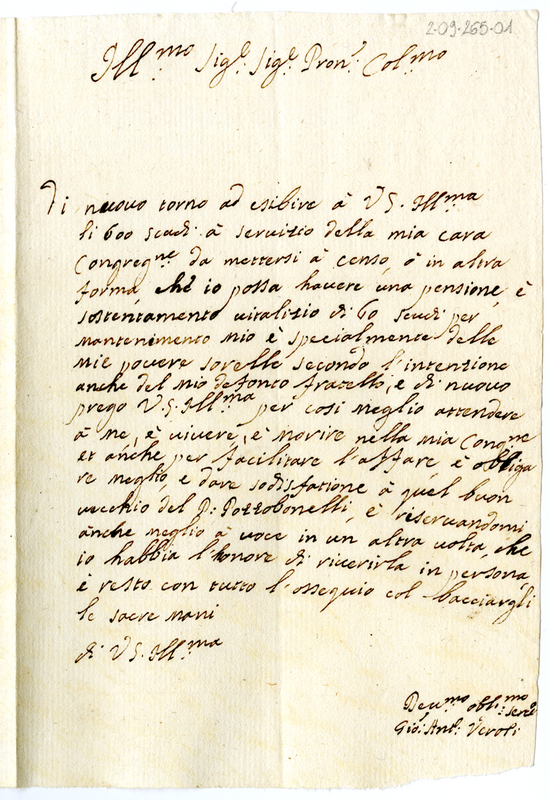 2.09.265.01
Ill.mo Sig.e Sig.e Pron.e Col.mo
Di nuovo torno ad esibire à V.S. Ill.ma
li 600 scudi à servitio della mia cara
Congreg.ne da mettersi à censo ò in altra
forma, chè io possa havere una pensione, è
sostentamento vitalitio di 60 scudi per
mantenimento mio è specialmente delle
mie povere sorelle secondo l'intenzione
anche del mio defonto fratello, e di nuovo
prego V.S. Ill.ma per cosi meglio attendere
à me, è vivere, è morire nella mia Cong.ne
et anche per facilitare l'affare è obliga
re meglio, e dare sodisfatione à quel buon
vecchio del P. Pozzobonelli, è riservandomi
anche meglio à voce in un altra volta, che
io habbia l'honore di riverirla in persona
è resto con tutto l'ossequio col bacciargli
le sacre mani
di V.S. Ill.ma
Dev.mo obli.mo Serv.e
Gio: Ant.o Veroli